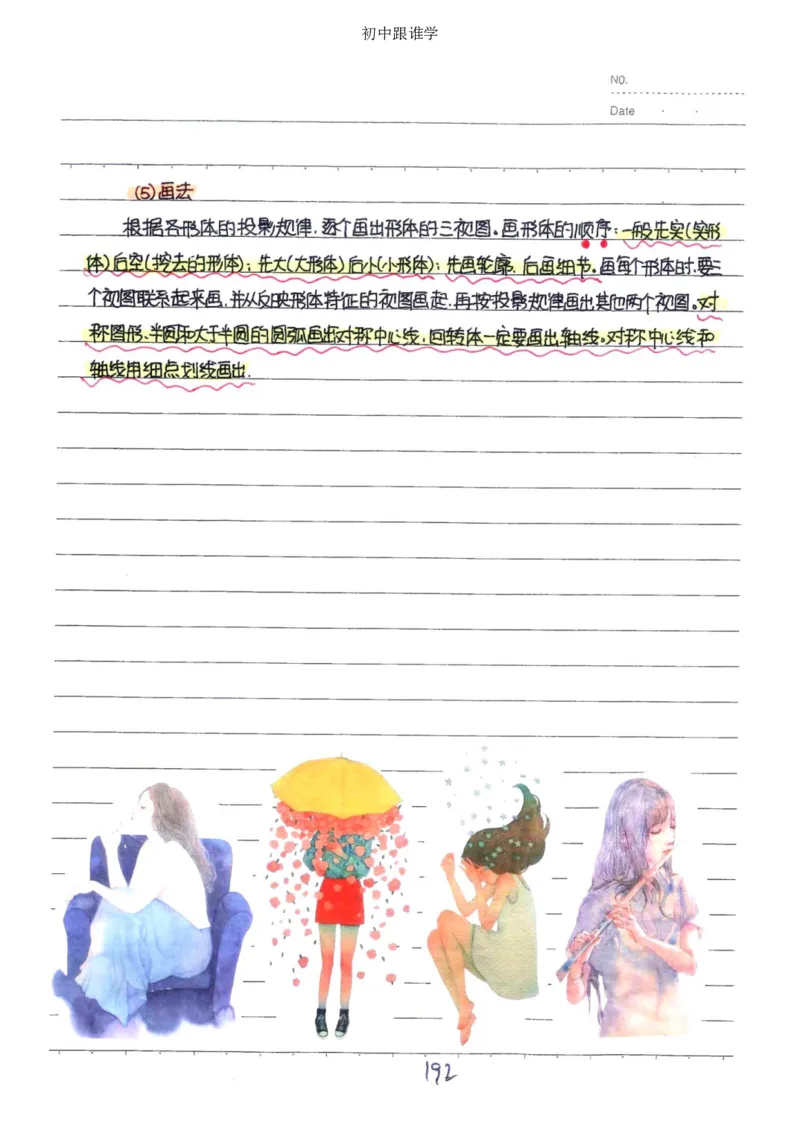 初中跟谁学
NO.
Date
(5)画法
根据各形体的投影规律,逐个画出形体的三视图。画形体的顺序:一般先实(实形
体)后空(挖去的形体);先大(大形体)后小(小形体);先画轮廓,后画细节。画每个形体时,要三
个视图联系起来画,并从反映形体特征的视图画起,再按投影规律画出其他两个视图。对
称图形、半圆和大于半圆的圆弧画出对称中心线,回转体一定要画出轴线。对称中心线和
轴线用细点划线画出.
192